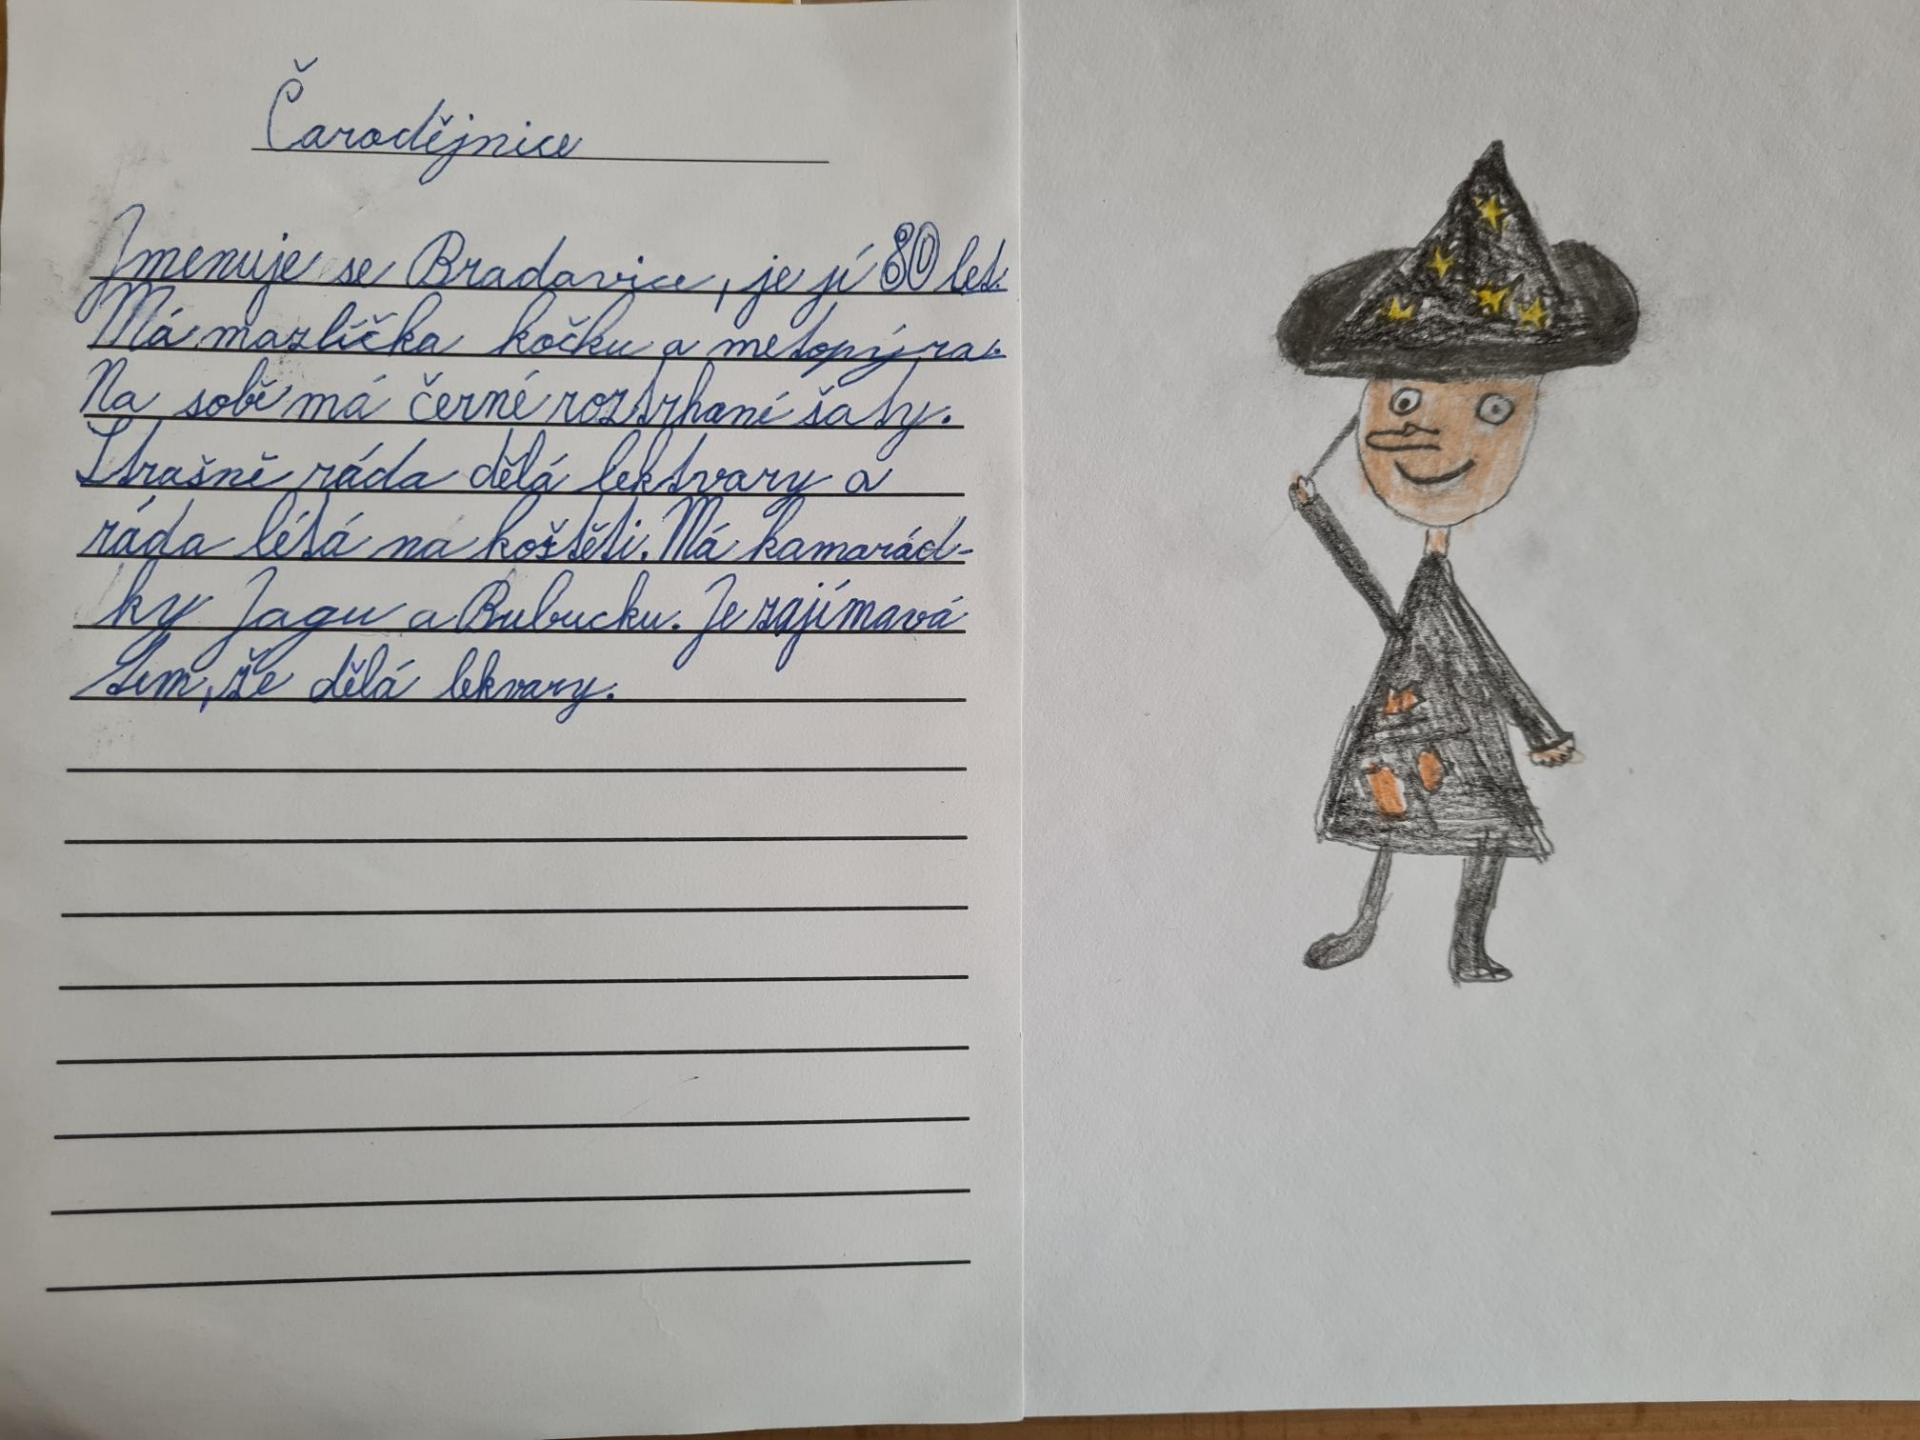 Čarodějnice
Jmenuje se Bradavice, je jí 80 let.
Má mazlíčka kočku a metopýra.
Na sobě má černé roztrhané šaty.
Strašně ráda dělá lektvary a
ráda létá na koštěti. Má kamarád-
ky Jagu a Bubucku. Je zajímavá
tím, že dělá lekvary.